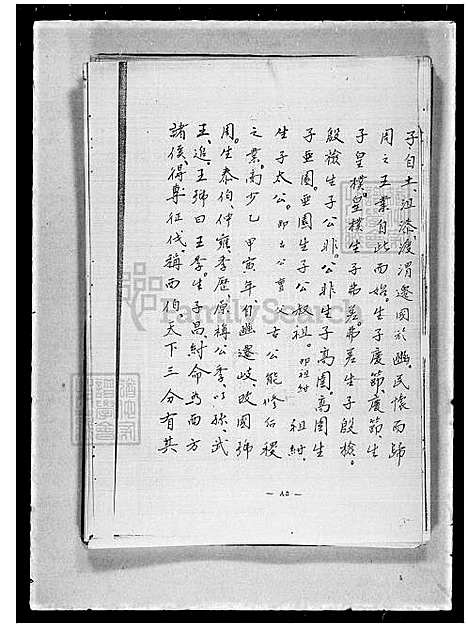 子自土、沮漆、渡渭遷國於豳。民懷而歸
周之王業自此而始。生子慶節、慶節、生
子皇樸。皇樸生子弗差。弗差生子殷檢。
殷檢生子公非。公非生子高圉。高圉生
子亞圉。亞圉生子公叔祖。即祖紂 祖紂、
生子太公。即古公亶父 古公能修后稷
之業。商少乙甲寅年、自豳遷岐、改國號
周。生泰伯、仲雍、季歷。原稱公季、以孫武
王、追王號曰王季。生子昌、紂命為西方
諸侯、得專征伐、稱西伯、天下三分有其
— 42 —
FamilySearch